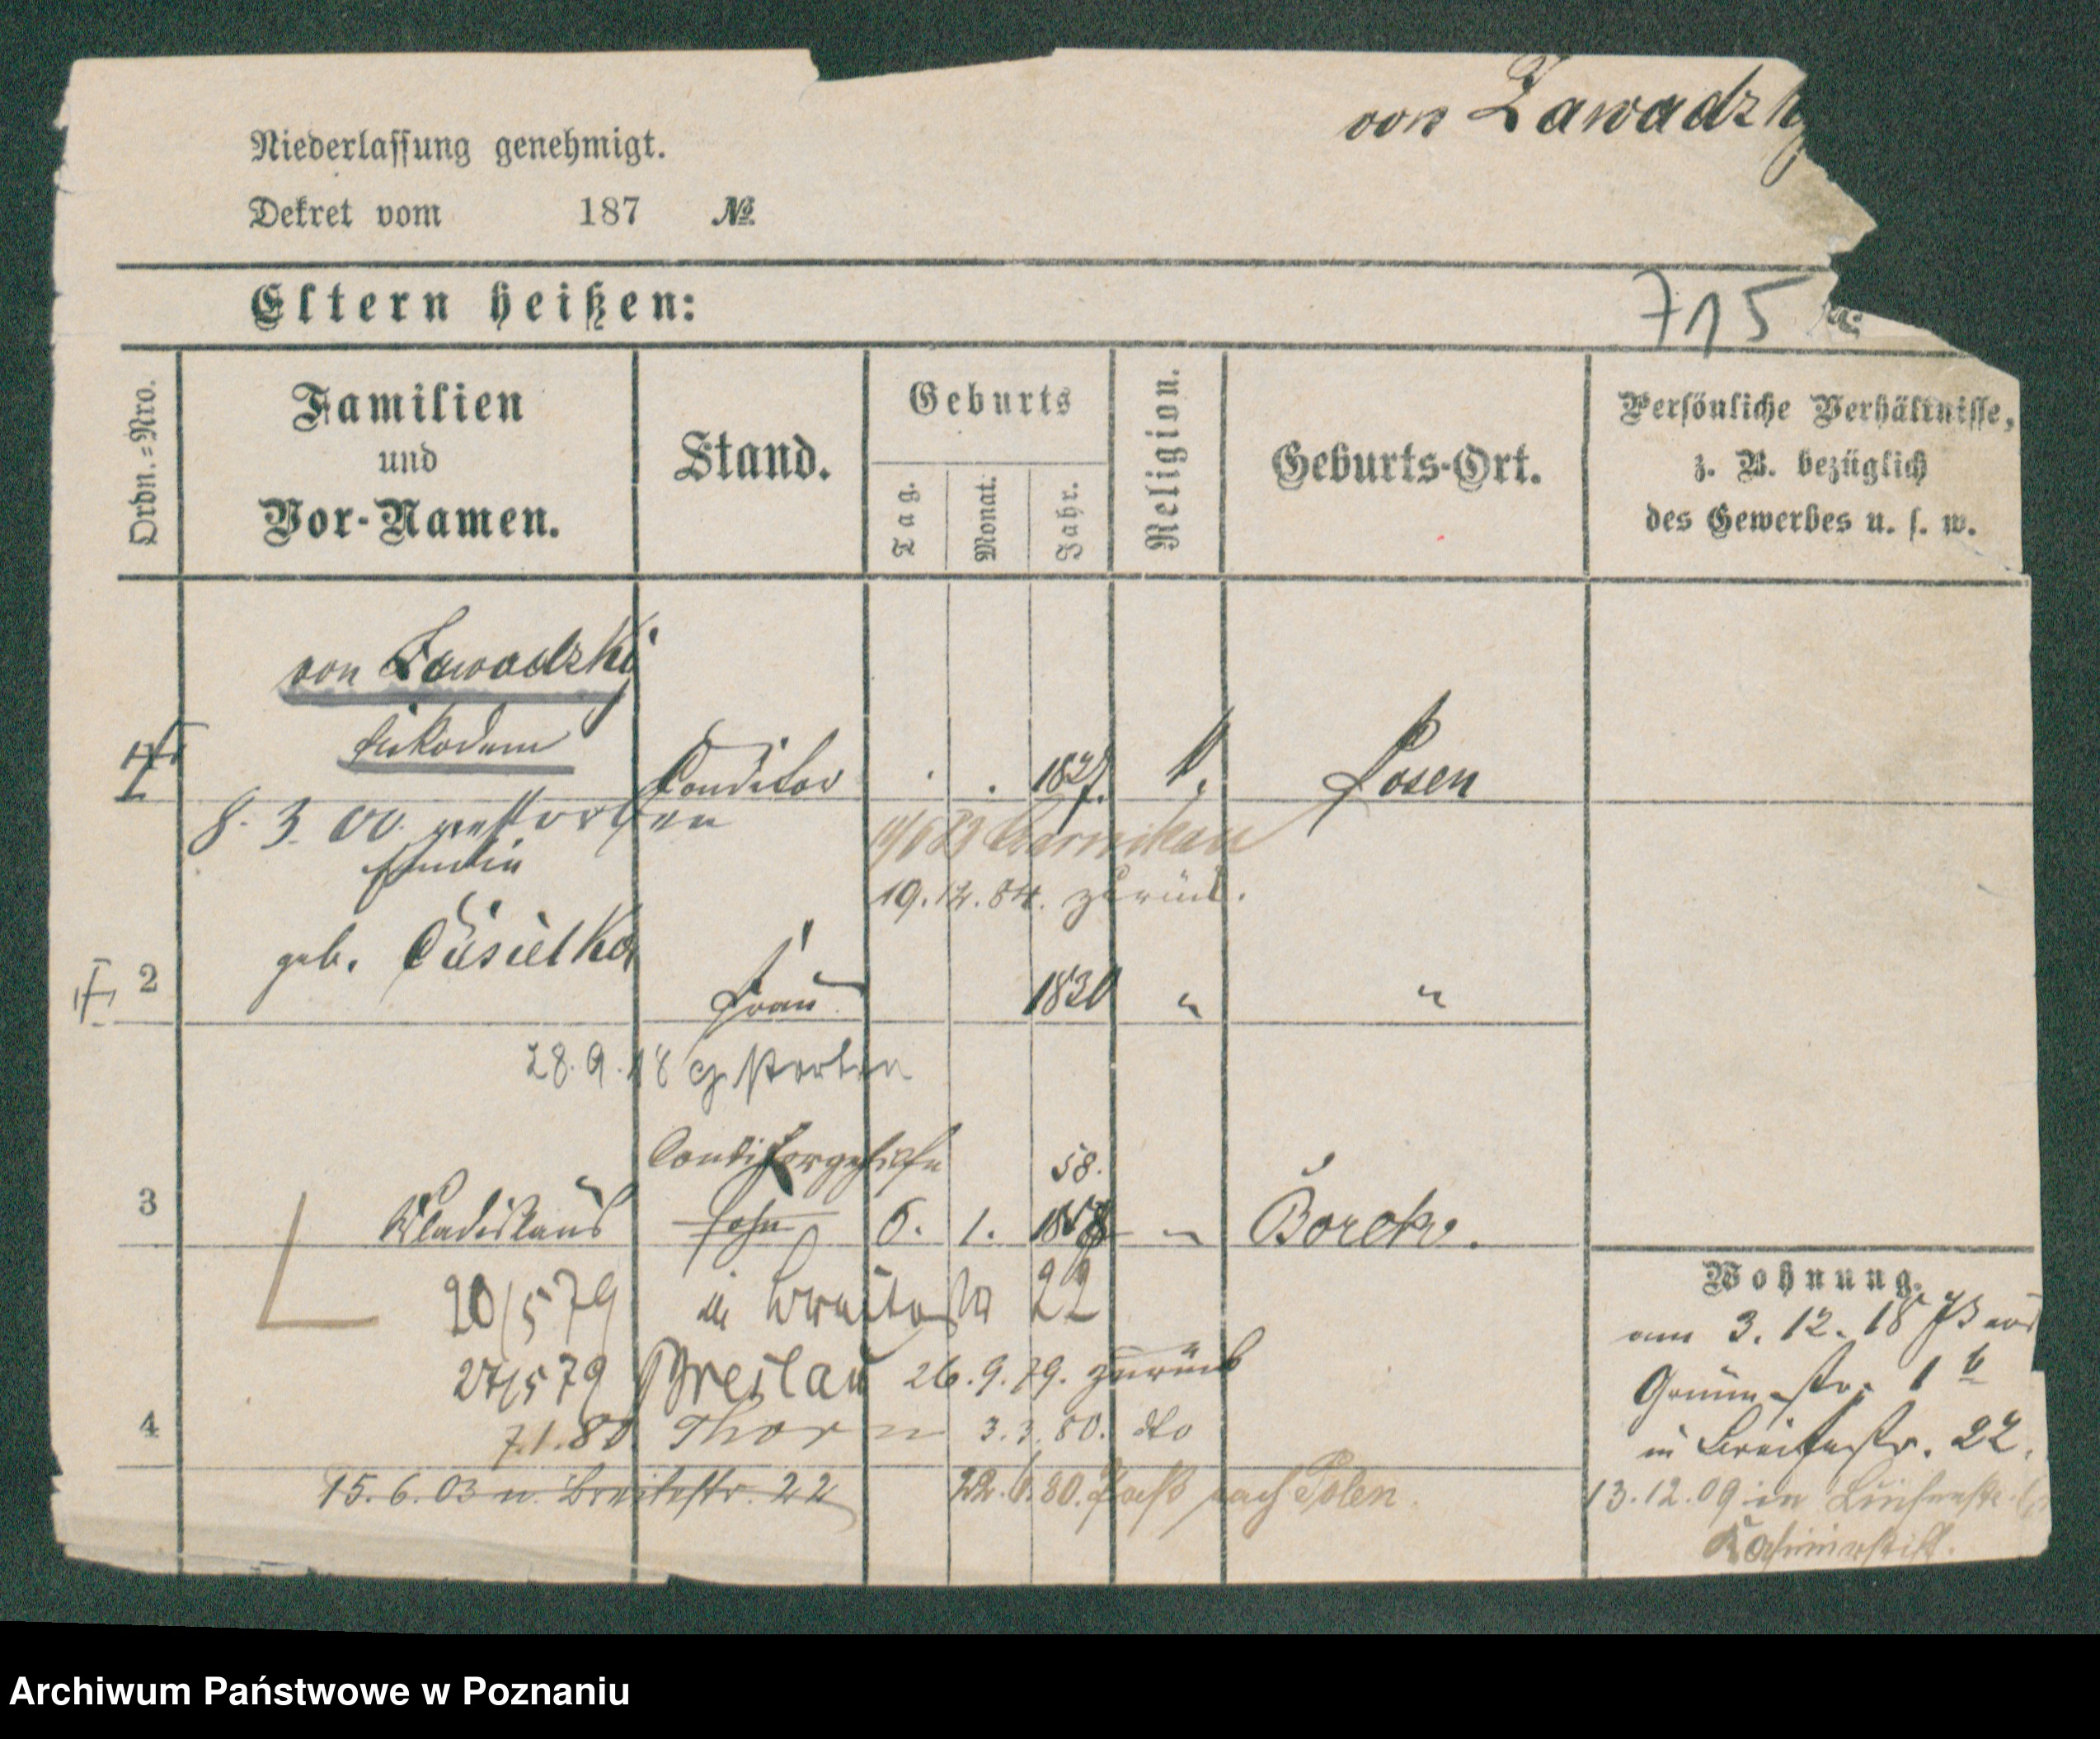 von Zawadzky
Niederlassung genehmigt.
Dekret vom 187 №
Eltern heißen:
715
Ordn.-Nro.
Familien
und
Vor-Namen.
Stand.
Geburts
Tag.
Monat.
Jahr.
Religion.
Geburts-Ort.
Persönliche Verhältnisse,
z. B. bezüglich
des Gewerbes u. s. w.
von Zawadzki
Nikodem
Conditor 1827 k. Posen
8. 3. 00. gestorben
Emilie
Czarnikau
19.12.84. zurück.
geb.
2 Frau 1830 " "
28.9.18 gestorben
Conditorgehilfe 58.
3 Wladislaus Sohn 6. 1. 1858 " Borek.
20/5 79 in Breitestr 22
27/5 79 Breslau 26.9.79. zurück
4 7.1.80. Thorn 3.3.80. dto
15.6.03 n. Breitestr. 22 22.6.80. Paß nach Polen.
Wohnung.
am 3. 12. 18 73 aus
Grünestr. 1 b
in Breitestr. 22.
13.12.09 in